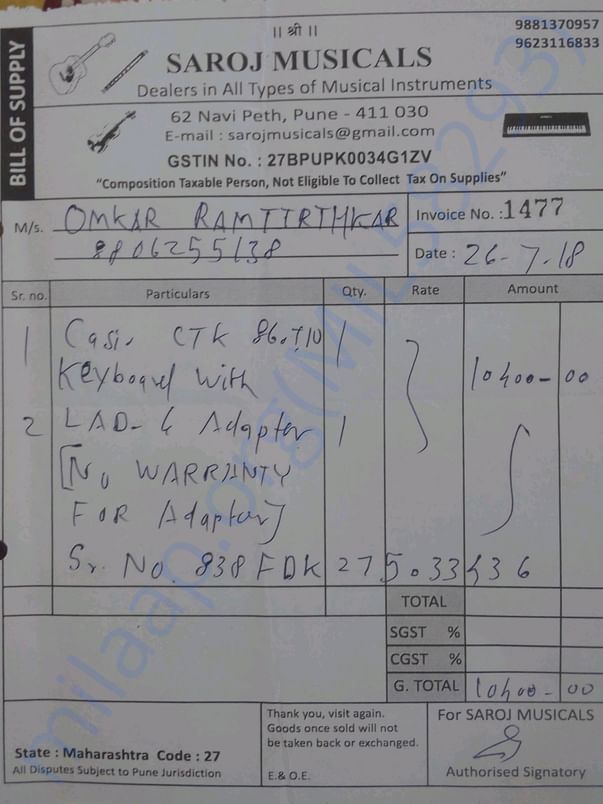 || श्री ||
9881370957
9623116833
BILL OF SUPPLY
SAROJ MUSICALS
Dealers in All Types of Musical Instruments
62 Navi Peth, Pune - 411 030
E-mail : sarojmusicals@gmail.com
GSTIN No. : 27BPUPK0034G1ZV
"Composition Taxable Person, Not Eligible To Collect Tax On Supplies"
M/s. OMKAR RAMTIRTHKAR
8806255138
Invoice No. : 1477
Date : 26-7-18
Sr. no. Particulars Qty. Rate Amount
1 Casio CTK 1
Keyboard with 10400-00
2 LAD-6 Adapter 1
[No WARRANTY
FOR Adapter]
Sr. No. 838 FDK 275
TOTAL
SGST %
CGST %
G. TOTAL 10400-00
Thank you, visit again.
Goods once sold will not
be taken back or exchanged.
E.& O.E.
For SAROJ MUSICALS
Authorised Signatory
State : Maharashtra Code : 27
All Disputes Subject to Pune Jurisdiction